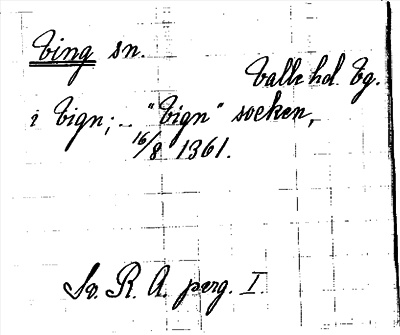 Ving sn.
Valle hd. Vg.
i Vign; – "Vign" socken,
16/8 1361.
Sv. R. A. perg. I.